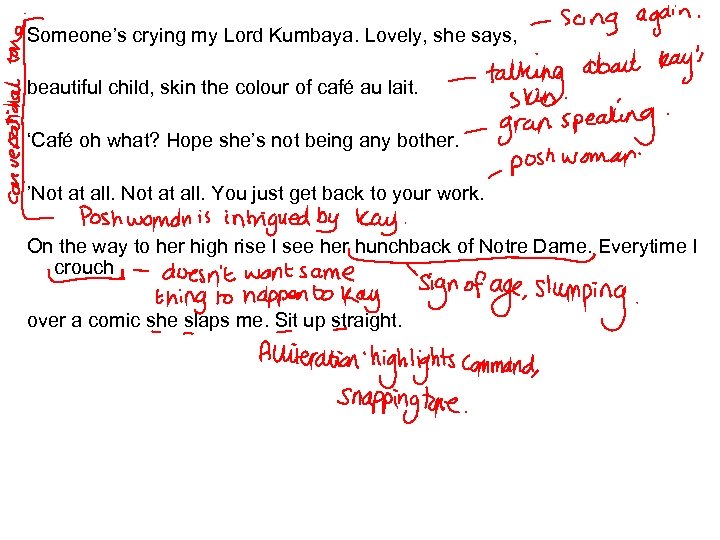 Someone’s crying my Lord Kumbaya. Lovely, she says,
— Song again.
beautiful child, skin the colour of café au lait.
— talking about Kay's
skin.
‘Café oh what? Hope she’s not being any bother.
— gran speaking.
’Not at all. Not at all. You just get back to your work.
– posh woman.
conversational tone
— Posh woman is intrigued by Kay.
On the way to her high rise I see her hunchback of Notre Dame. Everytime I
crouch
— doesn't want same
thing to happen to Kay
sign of age, slumping.
over a comic she slaps me. Sit up straight.
Alliteration highlights command,
snapping tone.